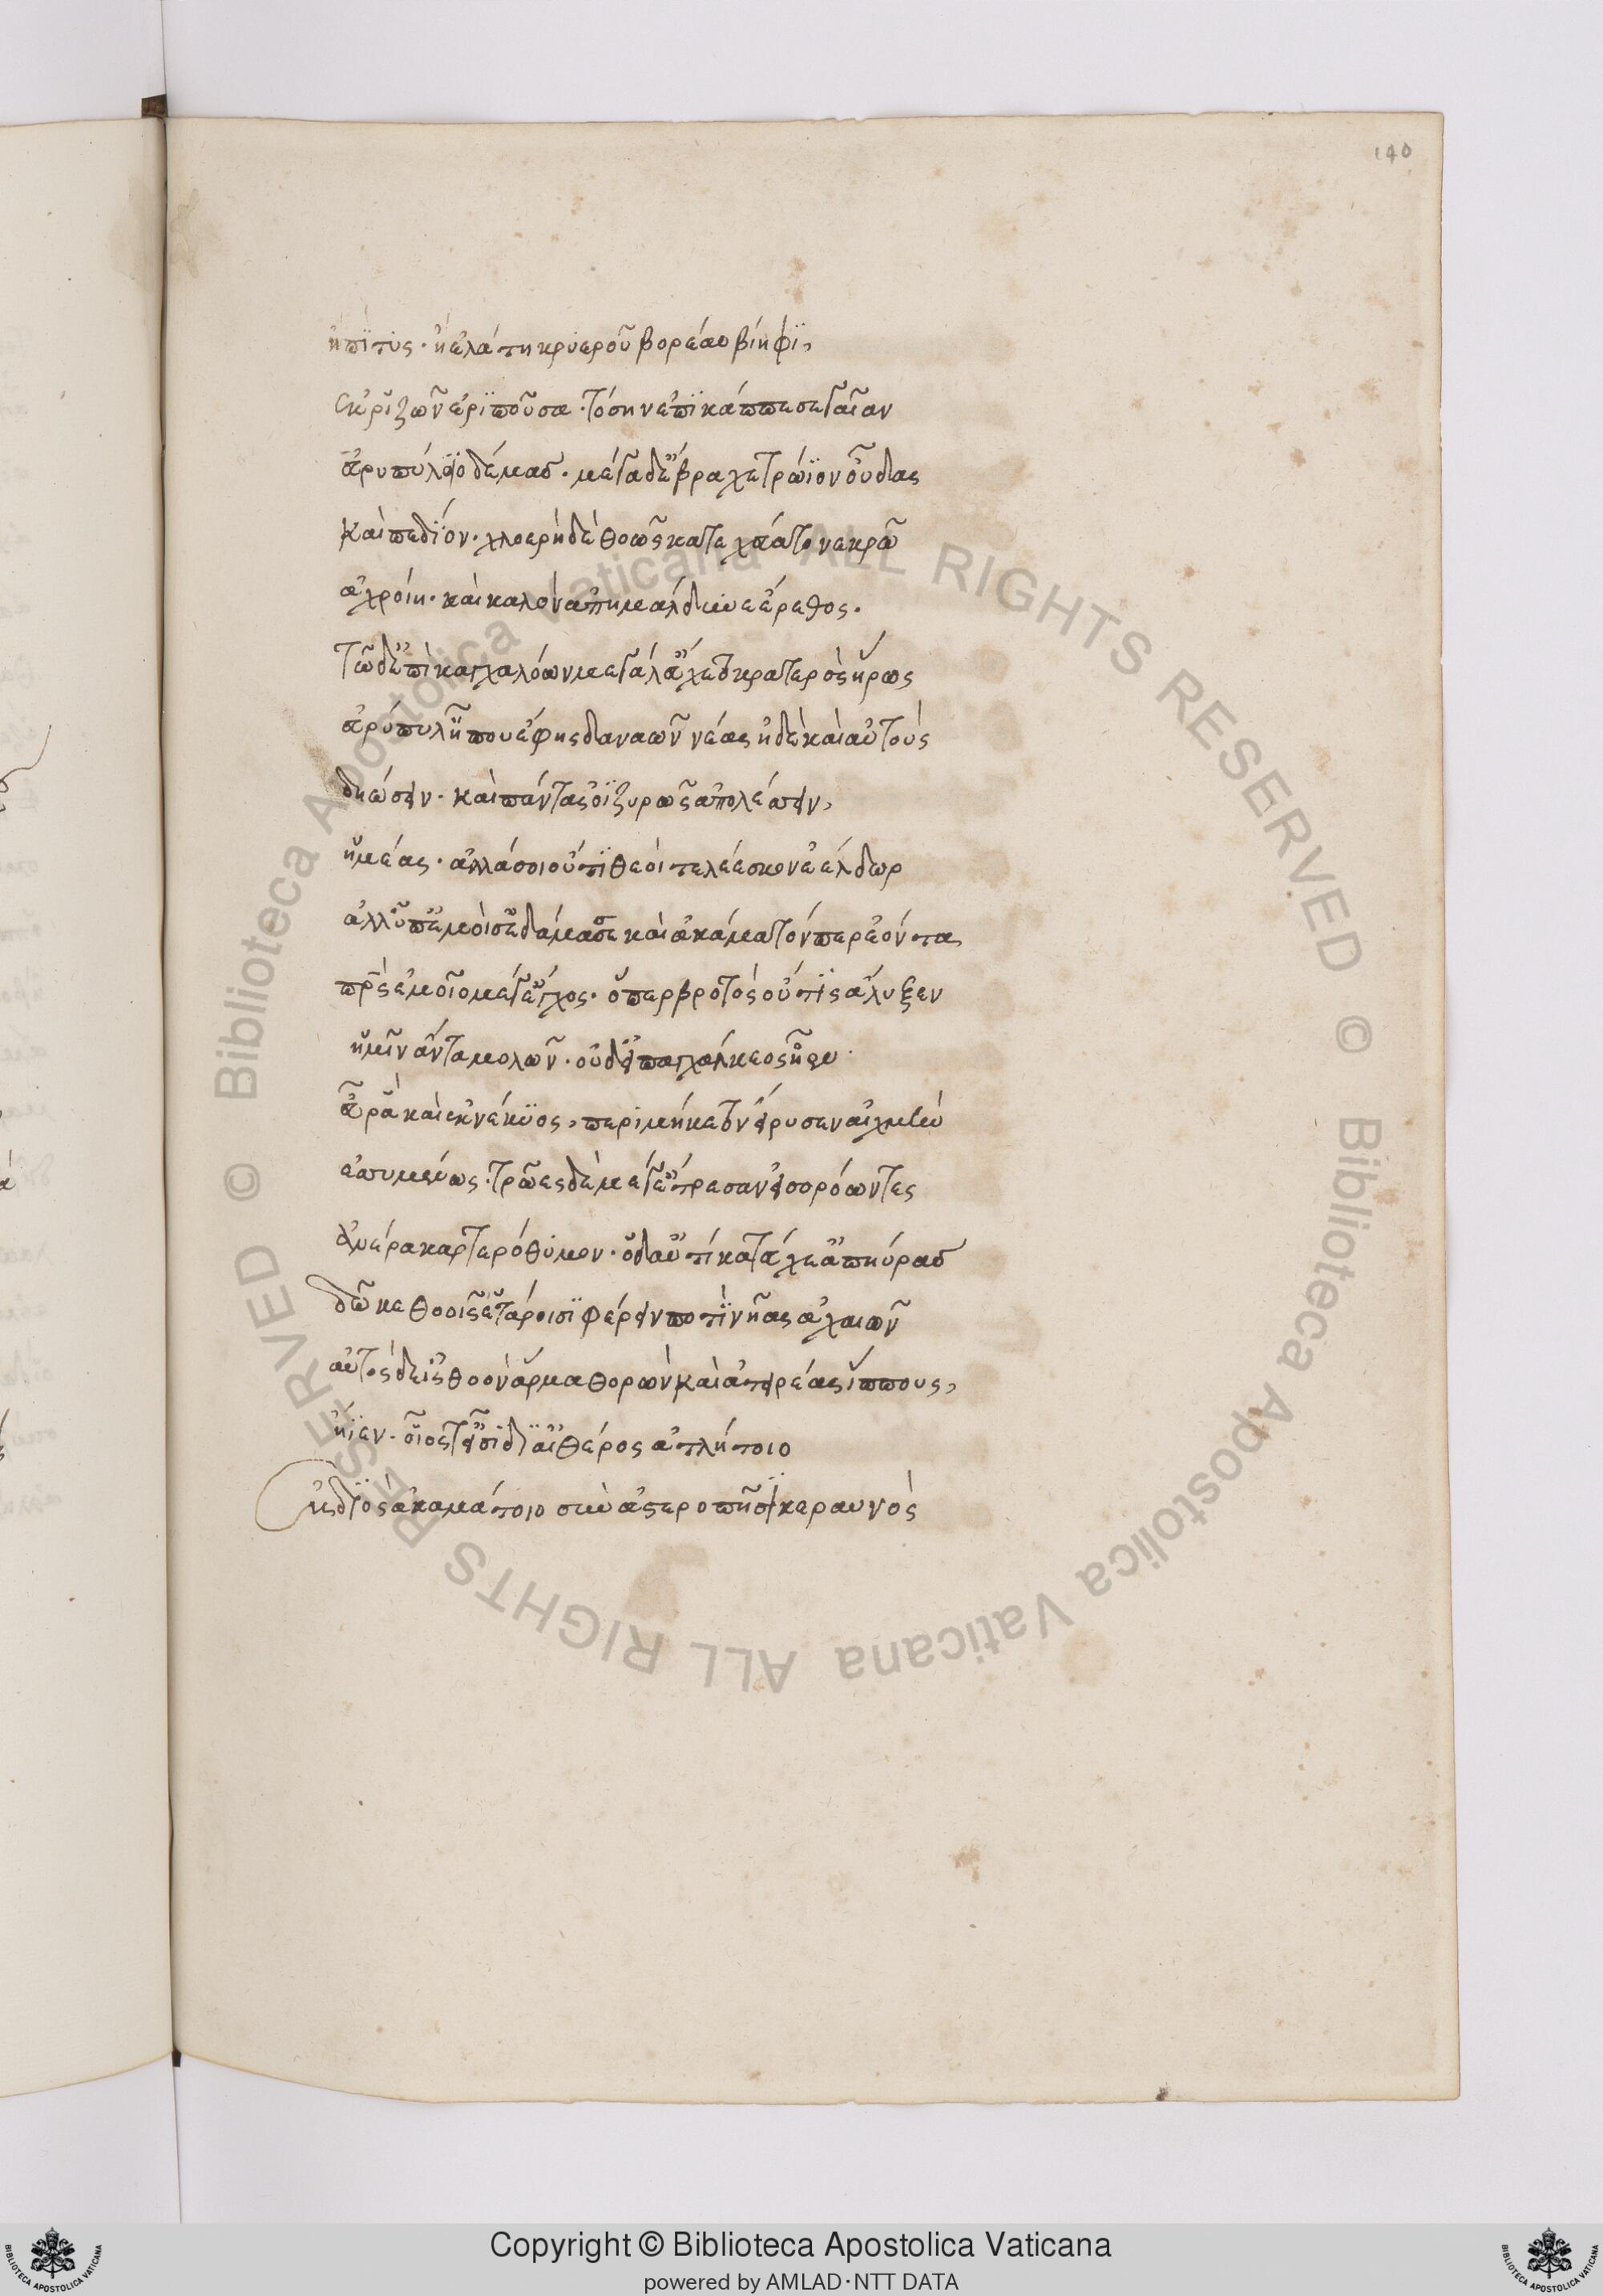 140
ἢ πίτυς· ἢ ἐλάτη κρυεροῦ βορέαο βίηφι,
ἐκ ῥιζῶν ἐριποῦσα· τόση νεπικάππεσε γαῖαν
εὐρυπύλοιο δέμας· μέγα δ' ἔβραχε τρώϊον οὖδας
καὶ πεδίον· χλοερὴ δὲ θοῶς κατεχεύατο νεκρῶ
ἀχροίη· καὶ καλὸν ἀπημάλδυνε ἔρεθος·
τῶ δ' ἐπικαγχαλόων μεγάλ' εὔχετο κρατερὸς ἥρως
εὐρύπυλ' ἦ που ἔφης δαναῶν νέας ἠδὲ καὶ αὐτοὺς
δηώσειν· καὶ πάντας ὀϊζυρῶς ἀπολέσσειν,
ἡμέας· ἀλλά σοι οὔτι θεοὶ τελέεσκον ἐέλδωρ
ἀλλ' ὑπ' ἐμοί σ' ἐδάμασσε καὶ ἀκάματόν περ ἐόντα
πρὸς ἐμοῖο μέγ' ἔγχος· ὅπερ βροτὸς οὔτις ἄλυξεν
ἡμῖν ἄντα μολὼν· οὐδ' εἰ παγχάλκεος ᾖεν·
ἦ ῥα καὶ ἐκ νέκυος, περιμήκετον εἴρυσεν αἰχμὴν
ἐσσυμένως· τρῶες δὲ μέγ' ἔτρεσαν εἰσορόωντες
ἀνέρα καρτερόθυμον· ὁ δ' αὐτίκα τεύχε' ἀπηύρας
δῶκε θοοῖς ἑτάροισι φέρειν ποτὶ νῆας ἀχαιῶν
αὐτὸς δ' εἰς θοὸν ἅρμα θορὼν καὶ ἀτειρέας ἵππους,
ἤϊεν· οἷός τ' εἶσι δι' αἰθέρος ἀπλήτοιο
ἐκ διὸς ἀκαμάτοιο σὺν ἀστεροπῆσι κεραυνὸς
Copyright © Biblioteca Apostolica Vaticana
powered by AMLAD·NTT DATA